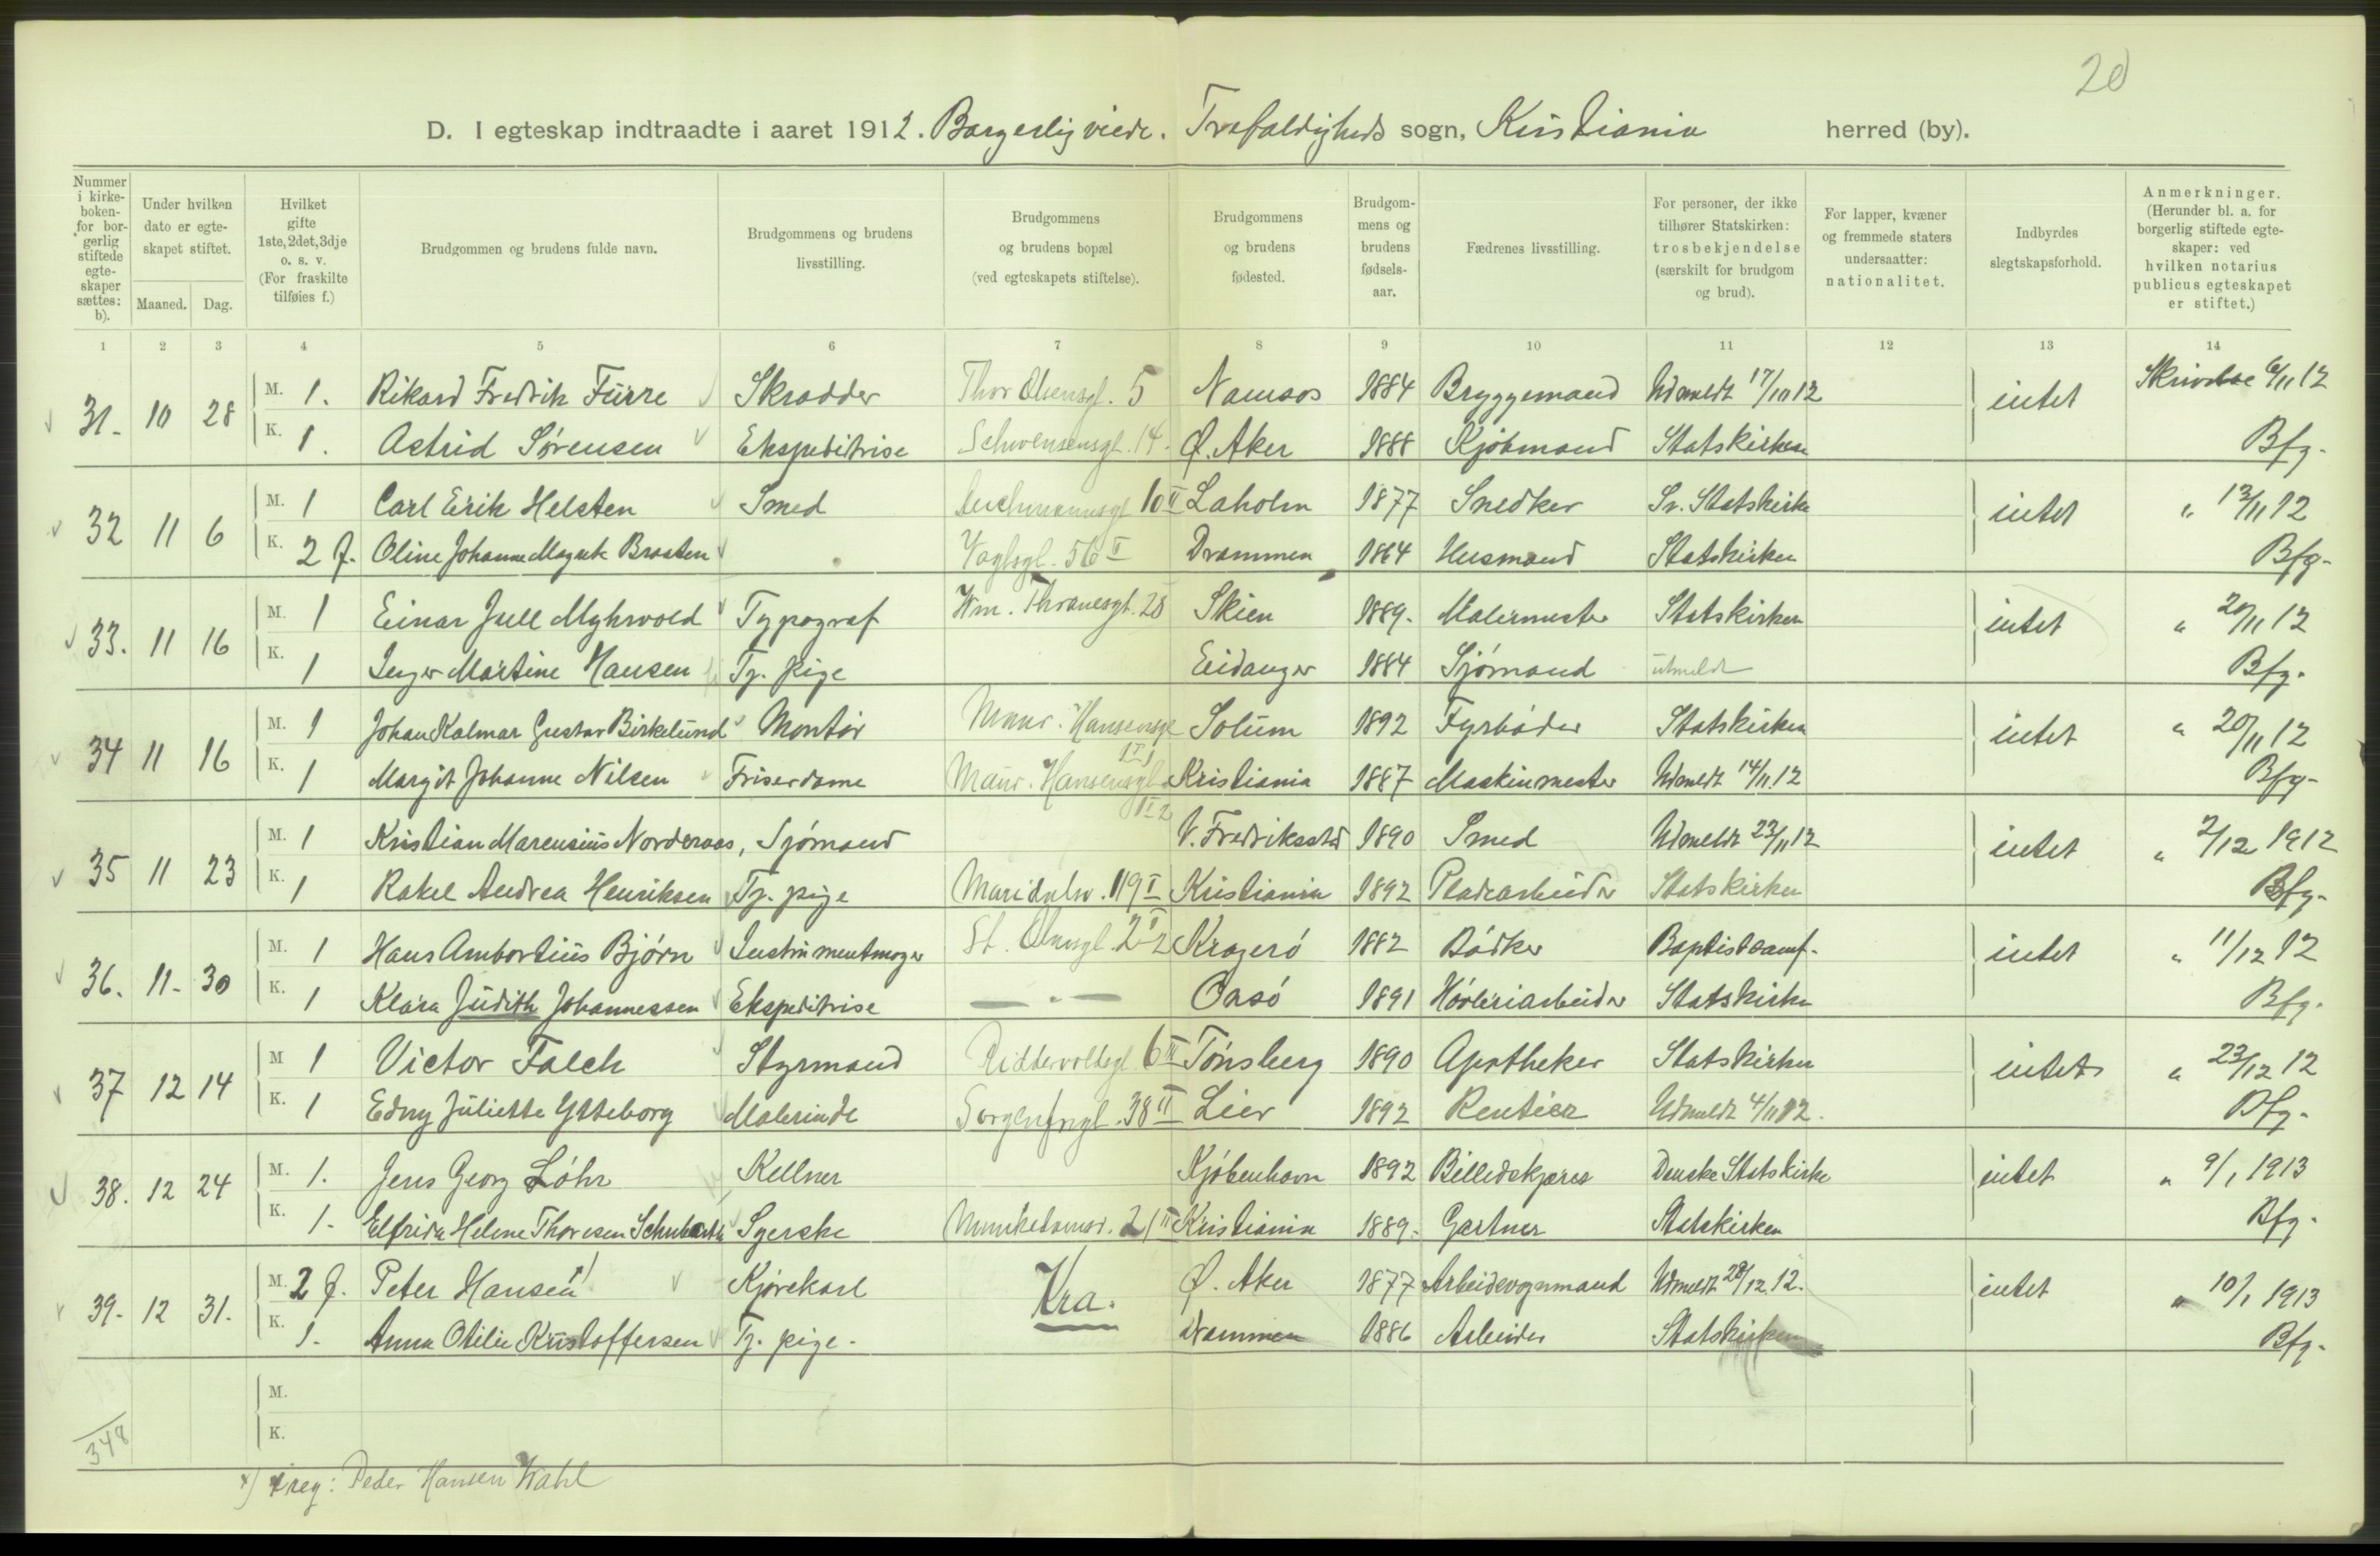 20
D. I egteskap indtraadte i aaret 1912. Borgerlig viede. Trefoldigheds sogn, Kristiania herred (by).
Nummer i kirkeboken- for borgerlig stiftede egteskaper sættes: b).
Under hvilken dato er egteskapet stiftet.
Maaned. Dag.
Hvilket gifte 1ste, 2det, 3dje o. s. v. (For fraskilte tilføies f.)
Brudgommen og brudens fulde navn.
Brudgommens og brudens livsstilling.
Brudgommens og brudens bopæl (ved egteskapets stiftelse).
Brudgommens og brudens fødested.
Brudgommens og brudens fødselsaar.
Fædrenes livsstilling.
For personer, der ikke tilhører Statskirken: trosbekjendelse (særskilt for brudgom og brud).
For lapper, kvæner og fremmede staters undersaatter: nationalitet.
Indbyrdes slegtskapsforhold.
Anmerkninger. (Herunder bl. a. for borgerlig stiftede egteskaper: ved hvilken notarius publicus egteskapet er stiftet.)
1 2 3 4 5 6 7 8 9 10 11 12 13 14
31. 10 28 M. 1. Rikard Fredrik Fürre Skrædder Thor Olsensgt. 5 Namsos 1884 Bryggemand Udmeldt 17/10 12 intet 6/11 12
K. 1. Astrid Sørensen Ekspeditrise Schwensensgt. 14. Ø. Aker 1888 Kjøbmand Statskirken Bfg.
32 11 6 M. 1 Carl Erik Helsten Smed 10 II Laholm 1877 Snedker Sv. Statskirke intet " 13/11 12
K. 2 f. Oline Johanne Braaten Vogtsgt. 56 II Drammen 1864 Husmand Statskirken Bfg.
33. 11 16 M. 1 Einar Juell Myhrvold Typograf Wm. Thranesgt. 28 Skien 1889. Malermester Statskirken intet " 20/11 12
K. 1 Inger Martine Hansen Tj. pige Eidanger 1884 Sjømand utmeldt Bfg.
34 11 16 M. 1 Johan Kalmar Gustav Birkelund Montør Maur. Hansensgt I 1 Solum 1892 Fyrbøder Statskirken intet " 20/11 12
K. 1 Margit Johanne Nilsen Friserdame Maur. Hansensgt II 2 Kristiania 1887 Maskinmester Udmeldt 14/11.12 Bfg.
35 11 23 M. 1 Kristian Marensius Norderaas, Sjømand V. Fredrikstad 1890 Smed Udmeldt 23/11 12 intet " 2/12 1912
K. 1 Rakel Andrea Henriksen Tj. pige Maridalsv. 119 I Kristiania 1892 Pladearbeider Statskirken Bfg.
36. 11. 30 M. 1 Hans Ambortius Bjørn Instrumentmager St. Olavsgt. 2 I 2 Kragerø 1882 Bødker Baptistsamf. intet " 11/12 12
K. 1 Klara Judith Johannessen Ekspeditrise — " — Onsø 1891 Høvleriarbeider Statskirken Bfg.
37 12 14 M 1 Victor Falch Styrmand Riddervoldsgt. 6 III Tønsberg 1890 Apotheker Statskirken intet " 23/12 12
K. 1 Edny Juliette Ytteborg Malerinde Sorgenfrigt. 38 II Lier 1892 Rentier Udmeldt 4/11 12. Bfg.
38. 12 24 M. 1. Jens Georg Løhr Kellner Kjøbenhavn 1892 Billedskjærer Danske Statskirke intet " 9/1 1913
K. 1. Elfrida Helene Thoresen Syerske Munkedamsv. 21 III Kristiania 1889. Gartner Statskirken Bfg.
39. 12 31. M. 2 f. Peter Hansen x) Kjørekarl Kra. Ø. Aker 1877 Arbeidsvognmand Udmeldt 28/12 12. intet " 10/1 1913
K. 1. Anna Otilie Kristoffersen Tj. pige. Drammen 1886 Arbeider Statskirken Bfg.
M.
K.
348
x) Peder Hansen Wahl